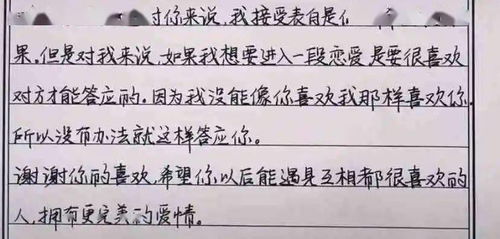 对你来说，我接受表白是
果。但是对我来说，如果我想要进入一段恋爱是要很喜欢
对方才能答应的。因为我没能像你喜欢我那样喜欢你，
所以没有办法就这样答应你。
谢谢你的喜欢，希望你以后能遇见互相都很喜欢的
人，拥有更完美的爱情。